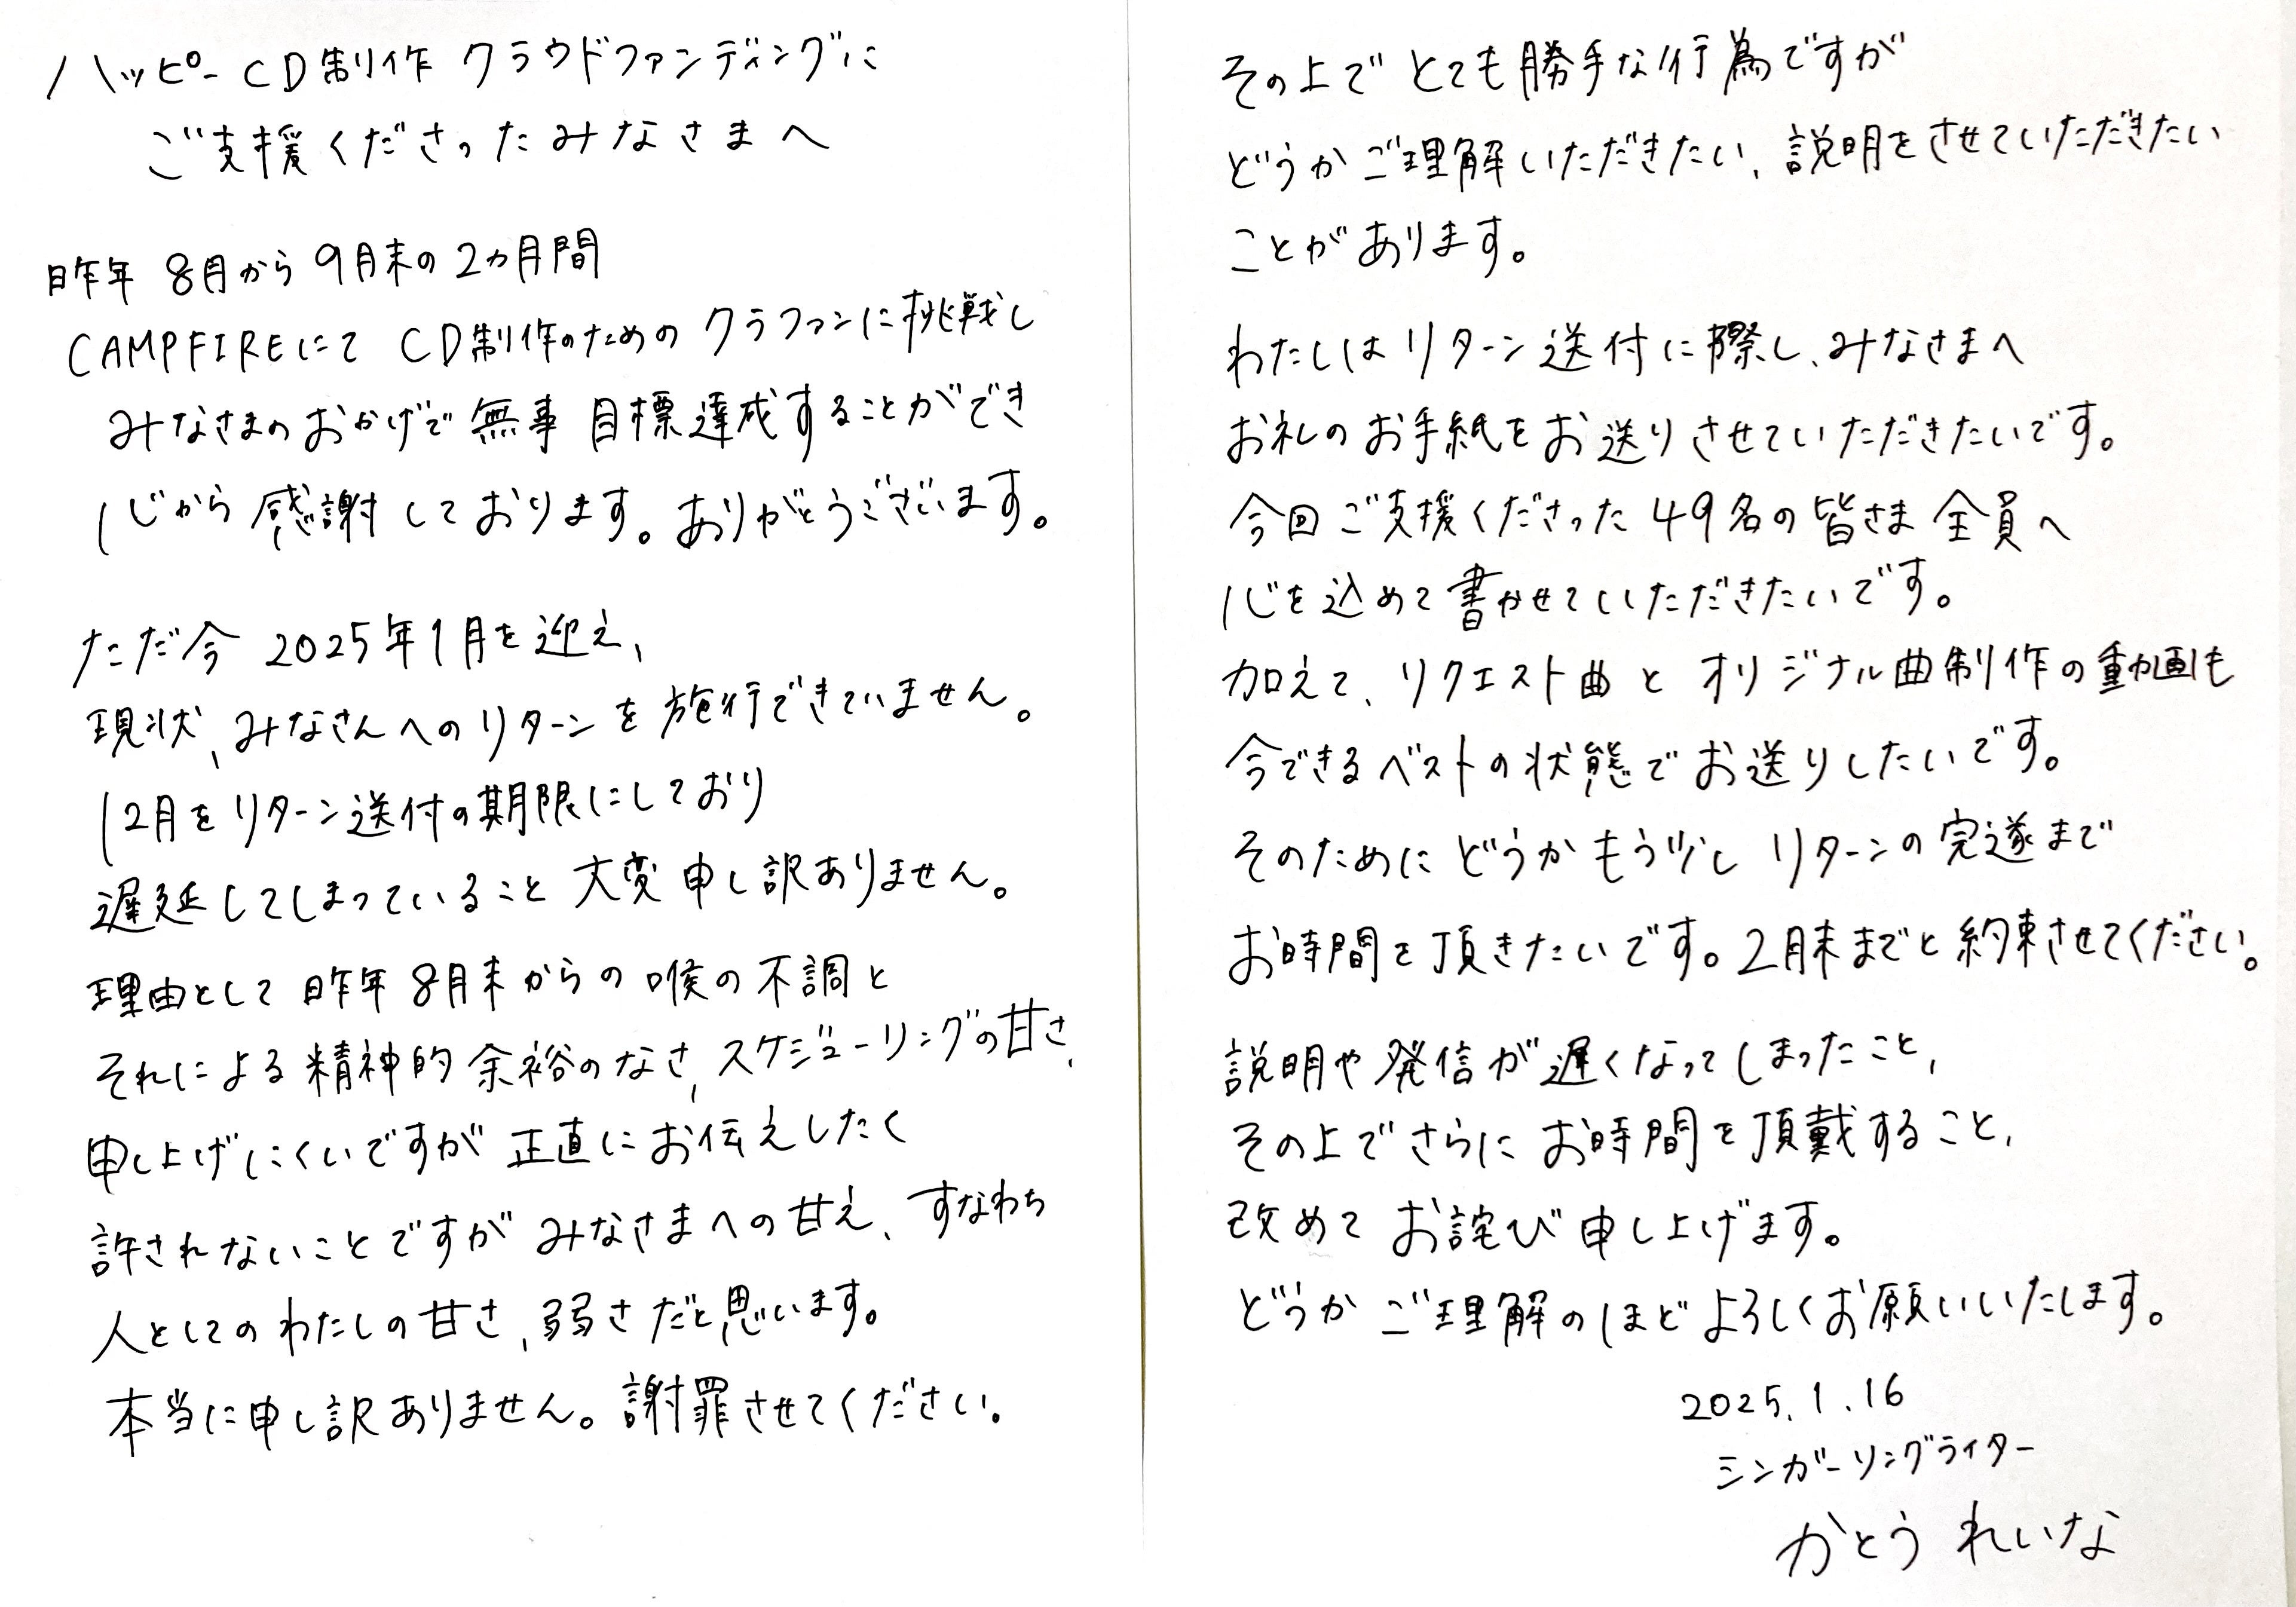 ハッピーCD制作 クラウドファンディングに
ご支援くださったみなさまへ
昨年 8月から9月末の2カ月間
CAMPFIREにて CD制作のための クラファンに挑戦し
みなさまのおかげで無事 目標達成することができ
心から感謝しております。ありがとうございます。
ただ今 2025年1月を迎え、
現状、みなさんへのリターンを施行できていません。
12月をリターン送付の期限にしており
遅延してしまっていること 大変申し訳ありません。
理由として 昨年8月末からの喉の不調と
それによる精神的余裕のなさ、スケジューリングの甘さ、
申し上げにくいですが 正直にお伝えしたく
許されないことですが みなさまへの甘え、すなわち
人としてのわたしの甘さ、弱さだと思います。
本当に申し訳ありません。謝罪させてください。
その上で とても勝手な行為ですが
どうかご理解いただきたい、説明をさせていただきたい
ことがあります。
わたしはリターン送付に際し、みなさまへ
お礼のお手紙をお送りさせていただきたいです。
今回ご支援くださった49名の皆さま全員へ
心を込めて書かせていただきたいです。
加えて、リクエスト曲と オリジナル曲制作の動画も
今できるベストの状態でお送りしたいです。
そのためにどうかもう少し リターンの完遂まで
お時間を頂きたいです。2月末までと約束させてください。
説明や発信が遅くなってしまったこと、
その上でさらにお時間を頂戴すること、
改めてお詫び申し上げます。
どうか ご理解のほどよろしくお願いいたします。
2025.1.16
シンガーソングライター
かとう れいな